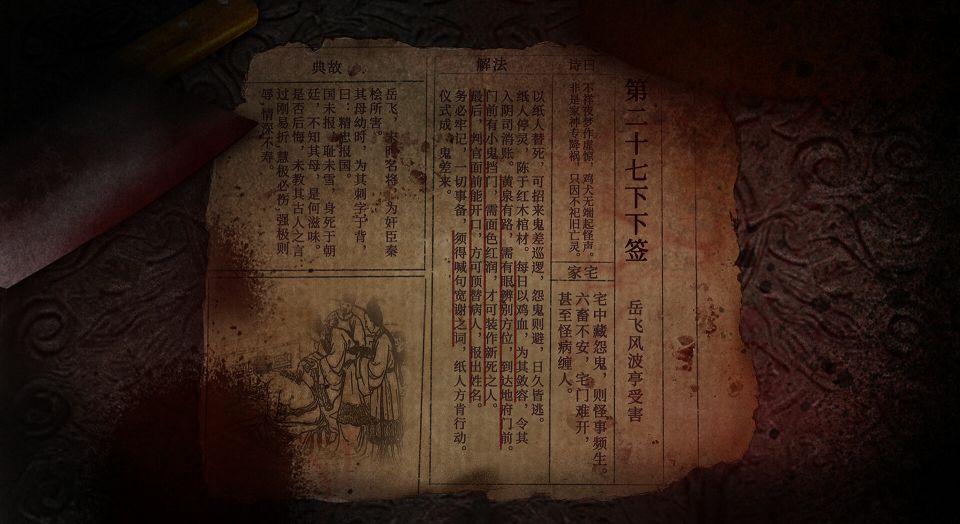 第二十七下下签
岳飞风波亭受害
诗曰
不祥夜梦作虚惊，鸡犬无端起怪声。
非是家神专降祸，只因不祀旧亡灵。
家宅
宅中藏怨鬼，则怪事频生。
六畜不安，宅门难开，
甚至怪病缠人。
解法
以纸人替死，可招来鬼差巡逻，怨鬼则避，日久皆逃。
纸人停灵，陈于红木棺材。每日以鸡血，为其敛容，令其
入阴司消账。黄泉有路，需有眼辨别方位，到达地府门前。
门前有小鬼挡门，需面色红润，才可装作新死之人。
最后，判官面前能开口，方可顶替病人，报出姓名。
务必牢记，一切事备，须得喊句宽谢之词，纸人方肯行动。
仪式成，鬼差来。
典故
岳飞，宋时名将，为奸臣秦
桧所害。
其母幼时，为其刺字于背，
曰：精忠报国。
国未报，耻未雪，身死于朝
廷，不知其母，是何滋味。
是否后悔，未教其古人之言：
过刚易折，慧极必伤，强极则
辱，情深不寿。